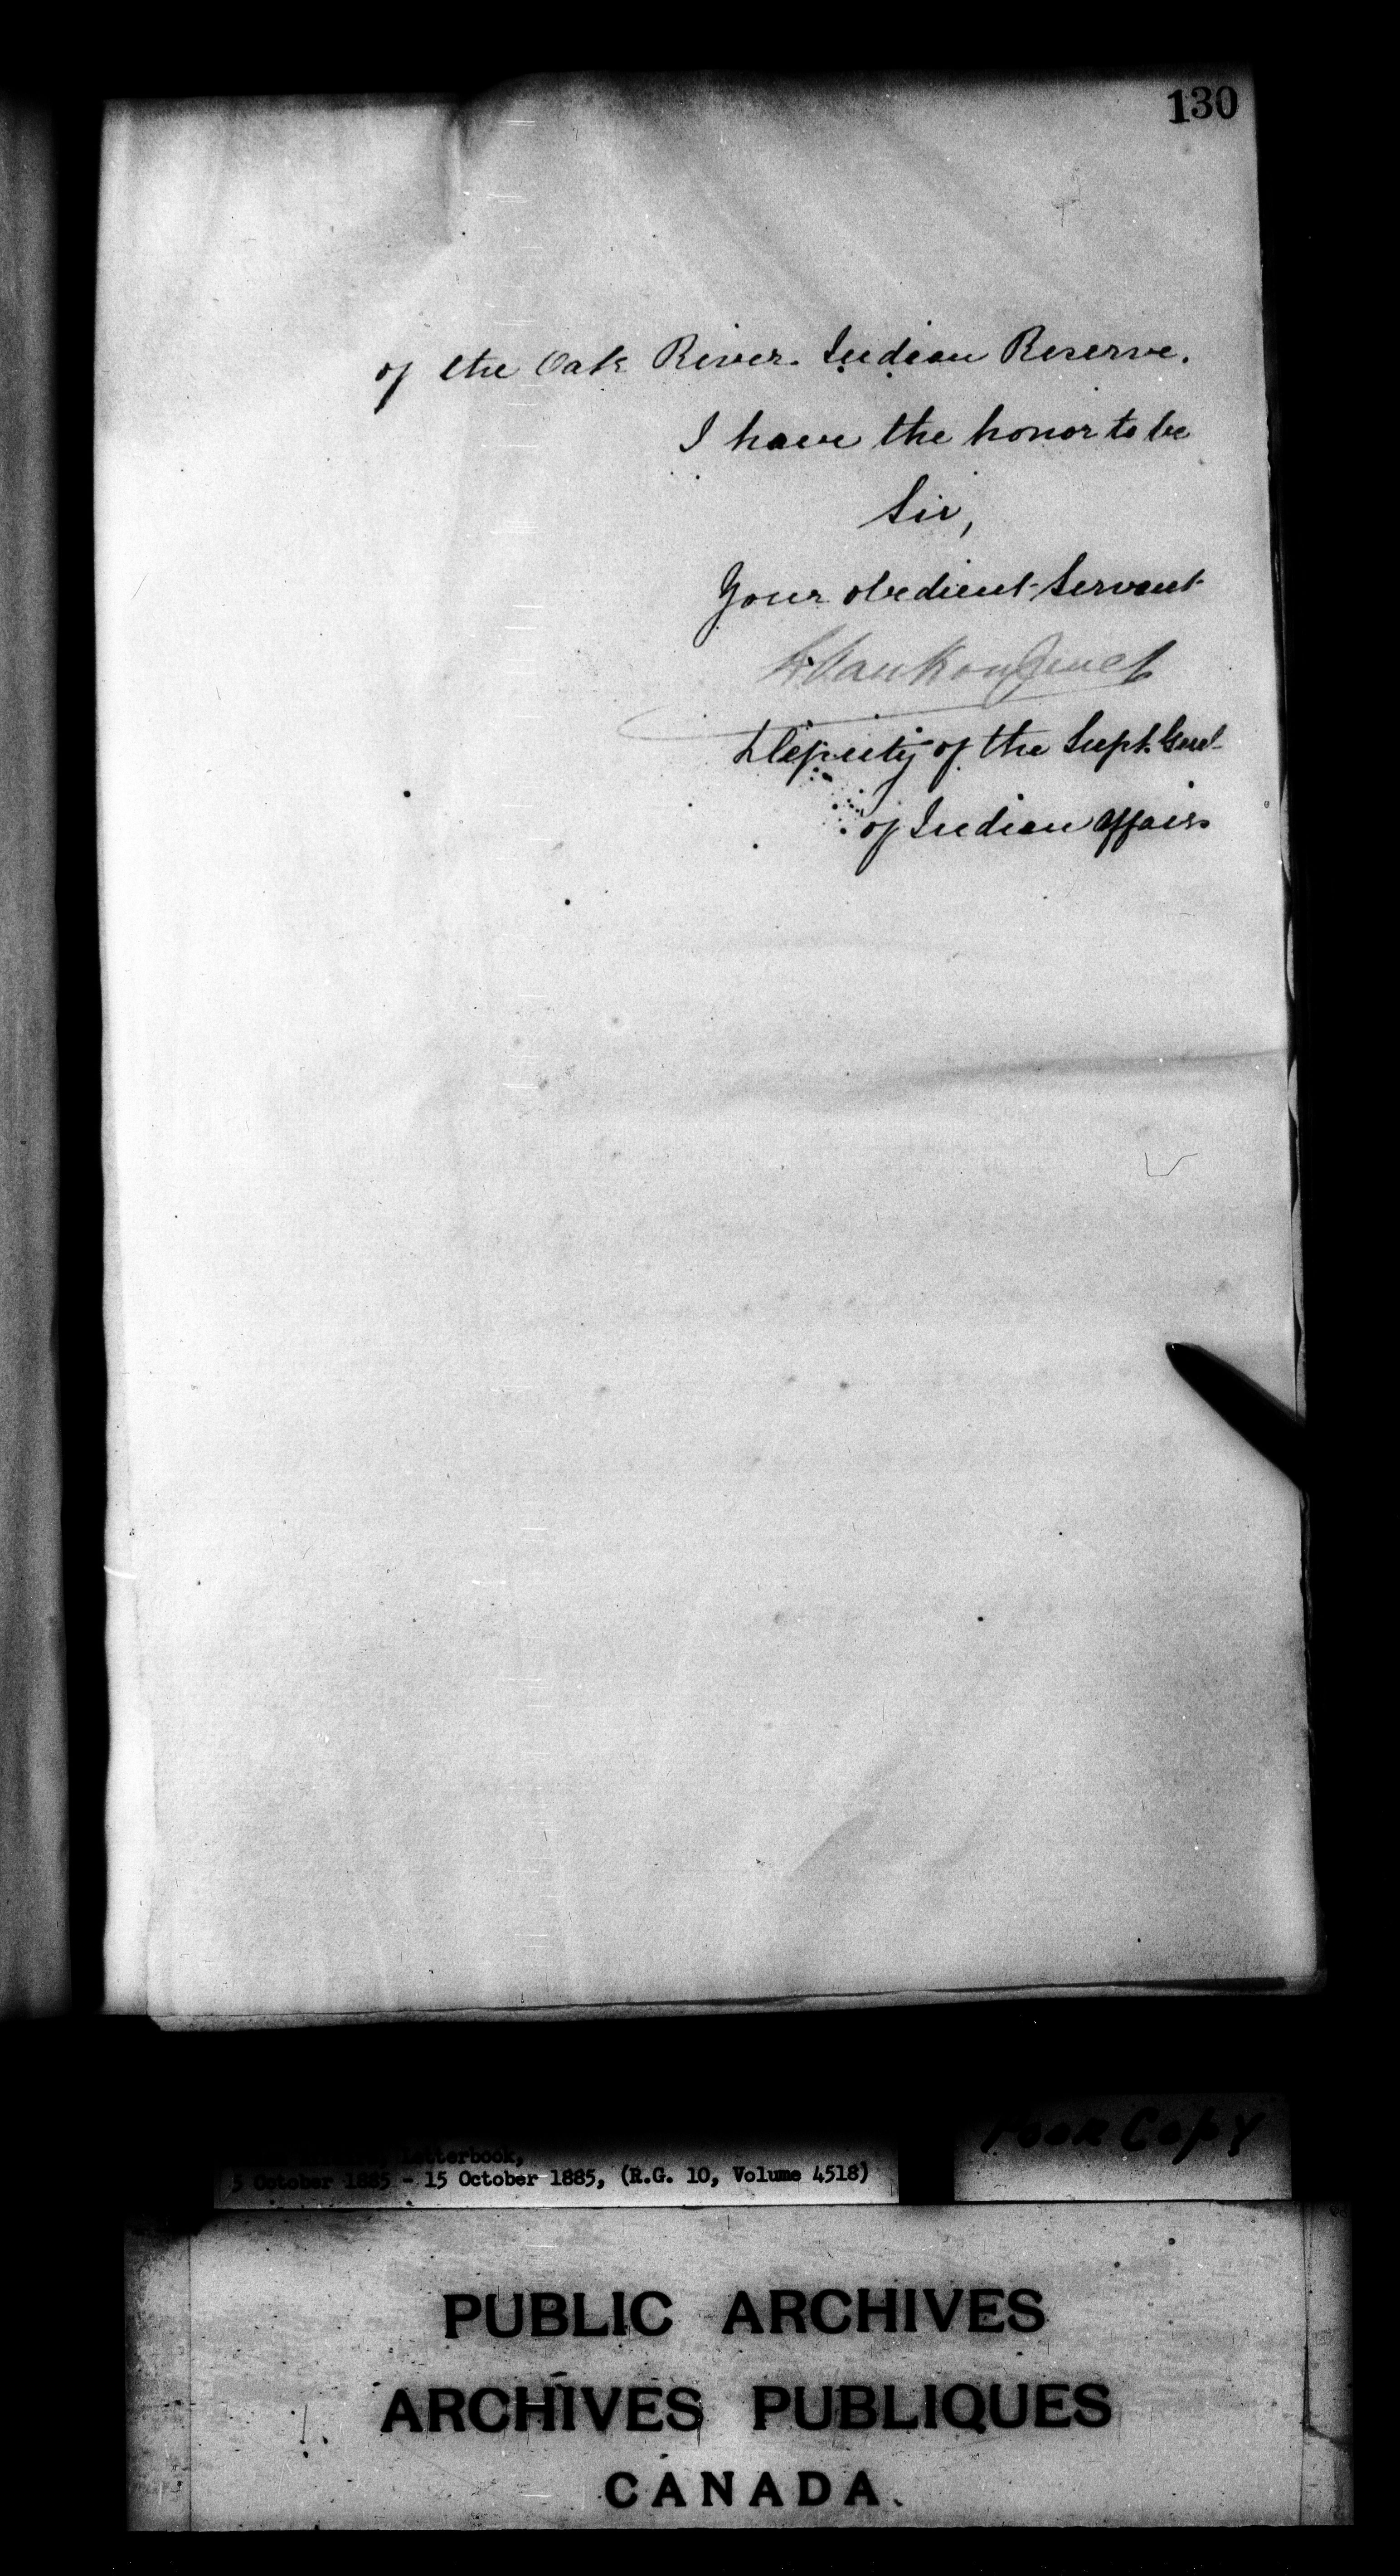 130
of the Oak River Indian Reserve.
I have the honor to be
Sir,
Your obedient Servant
L VanKoughnet
Deputy of the Supt. Genl
of Indian Affairs
Letterbook,
5 October 1885 - 15 October 1885, (R.G. 10, Volume 4518)
Poor Copy
PUBLIC ARCHIVES
ARCHIVES PUBLIQUES
CANADA